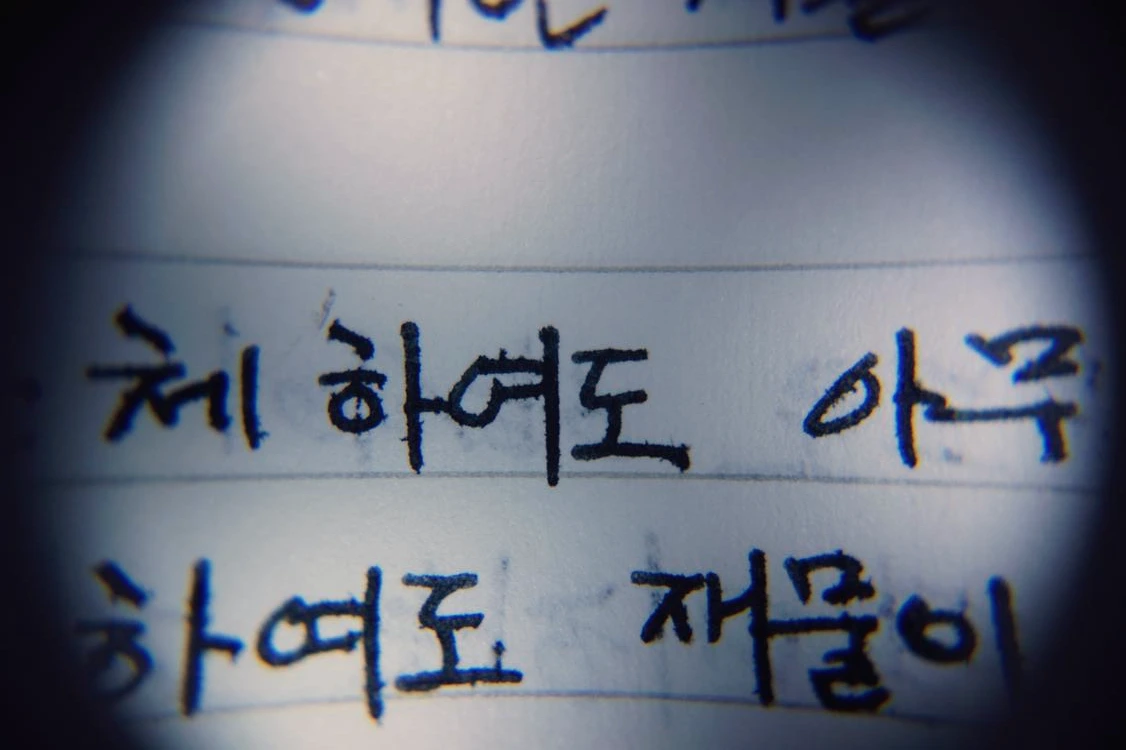 체 하여도 아무
하여도 재물이